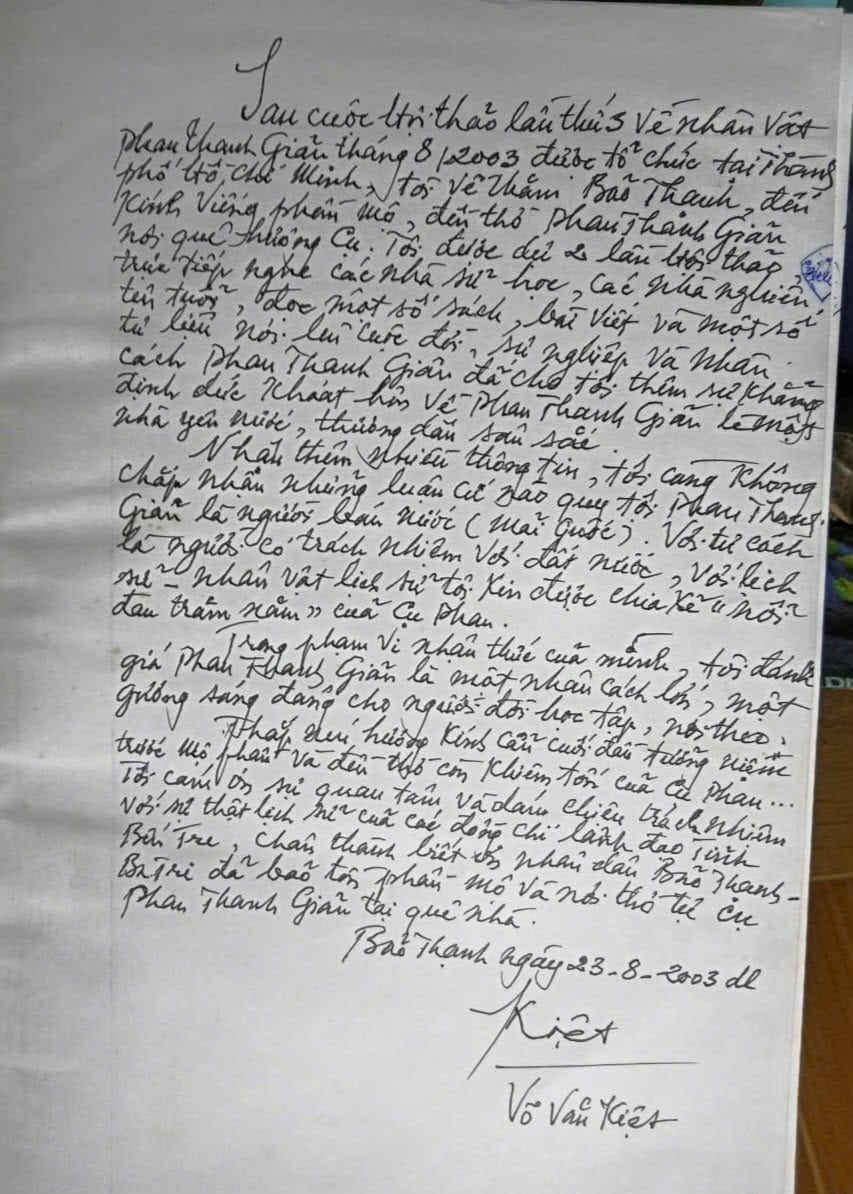 Sau cuộc hội thảo lần thứ 3 về nhân vật
Phan Thanh Giản tháng 8/2003 được tổ chức tại Thành
phố Hồ Chí Minh, tôi về thăm Bảo Thạnh, đến
kính viếng phần mộ, đền thờ Phan Thanh Giản
nơi quê hương Cụ. Tôi được dự 2 lần hội thảo,
trực tiếp nghe các nhà sử học, các nhà nghiên
tên tuổi, đọc một số sách, bài viết và một số
tư liệu nói lên cuộc đời, sự nghiệp và nhân
cách Phan Thanh Giản đã cho tôi thêm sự khẳng
định dứt khoát hơn về Phan Thanh Giản là một
nhà yêu nước, thương dân sâu sắc.
Nhận thêm nhiều thông tin, tôi càng không
chấp nhận những luận cứ nào quy tội Phan Thanh
Giản là người bán nước (mãi quốc). Với tư cách
là người có trách nhiệm với đất nước, với lịch
sử - nhân vật lịch sử tôi xin được chia sẻ "nỗi
đau trăm năm" của Cụ Phan.
Trong phạm vi nhận thức của mình, tôi đánh
giá Phan Thanh Giản là một nhân cách lớn, một
gương sáng đáng cho người đời học tập, noi theo.
Thắp nén hương kính cẩn cúi đầu tưởng niệm
trước mộ phần và đền thờ còn khiêm tốn của Cụ Phan...
Tôi cám ơn sự quan tâm và dám chịu trách nhiệm
với sự thật lịch sử của các đồng chí lãnh đạo Tỉnh
Bến Tre, chân thành biết ơn nhân dân Bảo Thạnh -
Ba Tri đã bảo tồn phần mộ và nơi thờ tự cụ
Phan Thanh Giản tại quê nhà.
Bảo Thạnh ngày 23-8-2003 dl
Kiệt
Võ Văn Kiệt